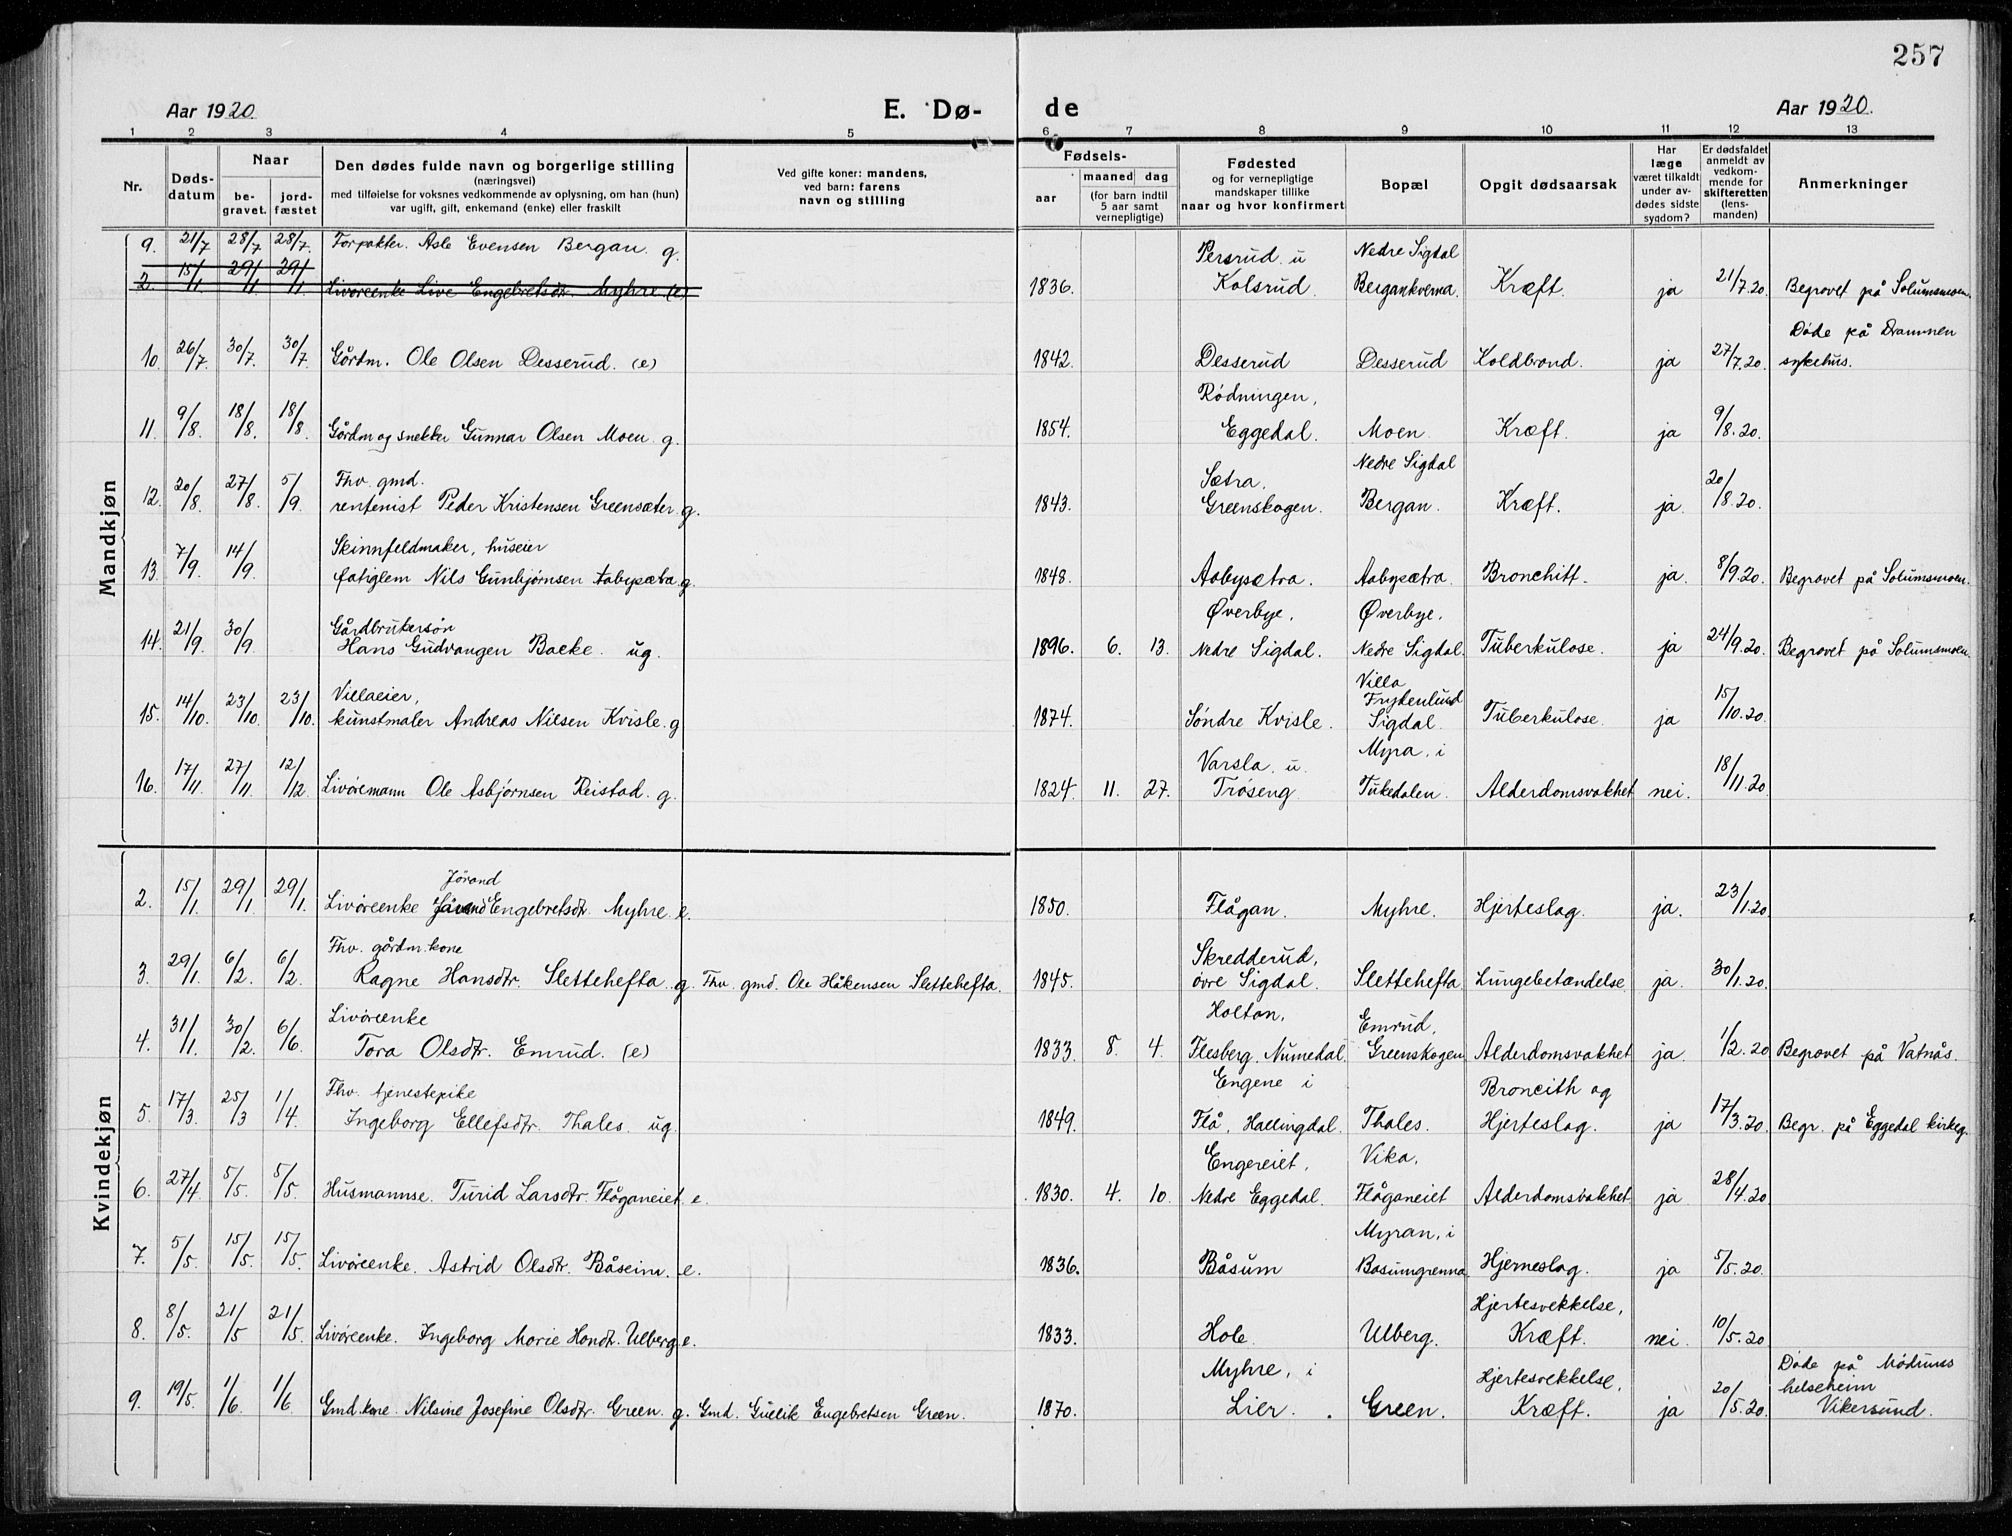 257
Aar 1920. E. Dø- de Aar 1920.
1 2 3 4 5 6 7 8 9 10 11 12 13
Nr.
Dødsdatum
Naar
begravet.
jordfæstet
Den dødes fulde navn og borgerlige stilling
(næringsvei)
med tilføielse for voksnes vedkommende av oplysning, om han (hun)
var ugift, gift, enkemand (enke) eller fraskilt
Ved gifte koner: mandens,
ved barn: farens
navn og stilling
Fødsels-
aar
maaned dag
(for barn indtil
5 aar samt
vernepligtige)
Fødested
og for vernepligtige
mandskaper tillike
naar og hvor konfirmert
Bopæl
Opgit dødsaarsak
Har
læge
været tilkaldt
under avdødes sidste
sygdom?
Er dødsfaldet
anmeldt av
vedkommende for
skifteretten
(lensmanden)
Anmerkninger
Mandkjøn
9. 21/7 28/7 28/7. Forpakter. Asle Evensen Bergan. g. 1836. Persrud u Kolsrud. Nedre Sigdal Bergankverna. Kræft. ja 21/7.20. Begravet på Solumsmoen.
2. 15/1 29/1 29/1 Livøreenke Live Engebretsdtr. Myhre (e)
10. 26/7. 30/7. 30/7. Gårdm. Ole Olsen Desserud. (e) 1842. Desserud Desserud Koldbrand. ja 27/7.20. Døde på Drammen sykehus.
11. 9/8. 18/8. 18/8. Gårdm og snekker Gunnar Olsen Moen g. 1854. Rødningen, Eggedal. Moen. Kræft. ja 9/8.20.
12. 20/8. 27/8. 5/9. Fhv. gmd. rentenist Peder Kristensen Greensæter g. 1843. Sætra. Greenskogen. Nedre Sigdal Bergan. Kræft. ja. 20/8.20.
13. 7/9. 14/9. Skinnfeldmaker, huseier fatiglem Nils Gunbjørnsen Aabysætra g. 1848. Aabysætra. Aabysætra. Bronchitt. ja. 8/9.20. Begravet på Solumsmoen.
14. 21/9. 30/9. Gårdbrukersøn Hans Gudvangen Bakke. ug. 1896. 6. 13. Øverbye, Nedre Sigdal. Øverbye. Nedre Sigdal. Tuberkulose. ja 24/9.20. Begravet på Solumsmoen.
15. 14/10. 23/10. 23/10. Villaeier, kunstmaler Andreas Nilsen Kvisle. g 1874. Søndre Kvisle. Villa Frykenlund Sigdal. Tuberkulose. ja 15/10.20.
16. 17/11. 27/11. 12/12. Livøremann Ole Asbjørnsen Reistad. g. 1824. 11. 27. Varsla. u. Trøseng Myra, i Tukedalen. Alderdomsvakhet nei. 18/11.20
Kvindekjøn
2. 15/1. 29/1. 29/1. Livøreenke Jørand Engebretsdtr. Myhre e. 1850. Flågan. Myhre. Hjerteslag. ja. 23/1.20
3. 29/1. 6/2. 6/2. Fhv. gårdm.kone Ragne Hansdtr. Slettehefta g. Fhv. gmd. Ole Håkensen Slettehefta. 1845. Skredderud, øvre Sigdal. Slettehefta Lungebetændelse ja. 30/1.20.
4. 31/1. 30/2. 6/6. Livøreenke Tora Olsdtr. Emrud. (e) 1833. 8. 4. Holtan, Flesberg, Numedal. Emrud, Greenskogen Alderdomsvakhet ja. 1/2.20 Begravet på Vatnås.
5. 17/3. 25/3 1/4. Fhv. tjenestepike Ingeborg Ellefsdtr. Thales. ug. 1849. Engene i Flå, Hallingdal. Thales. Broncith og Hjerteslag. ja 17/3.20. Begr. på Eggedal kirkeg.
6. 27/4 5/5. 5/5. Husmannse. Turid Larsdtr. Flåganeiet e. 1830. 4. 10. Engereiet, Nedre Eggedal. Vika, Flåganeiet Alderdomsvakhet ja 28/4.20
7. 5/5. 15/5. 15/5. Livøreenke. Astrid Olsdtr. Båseim. e. 1836. Båsum Myran, i Basumgrenna Hjerneslag. ja 5/5.20.
8. 8/5. 21/5 21/5. Livøreenke. Ingeborg Marie Hansdtr. Ulberg e. 1833. Hole. Ulberg. Hjertesvekkelse, Kræft. nei. 10/5.20
9. 19/5. 1/6. 1/6. Gmd.kone. Nilsine Josefine Olsdtr. Green. g. Gmd. Gullik Engebretsen Green. 1870. Myhre, i Lier. Green. Hjertesvekkelse, Kræft. ja 20/5.20. Døde på Modums helseheim Vikersund.